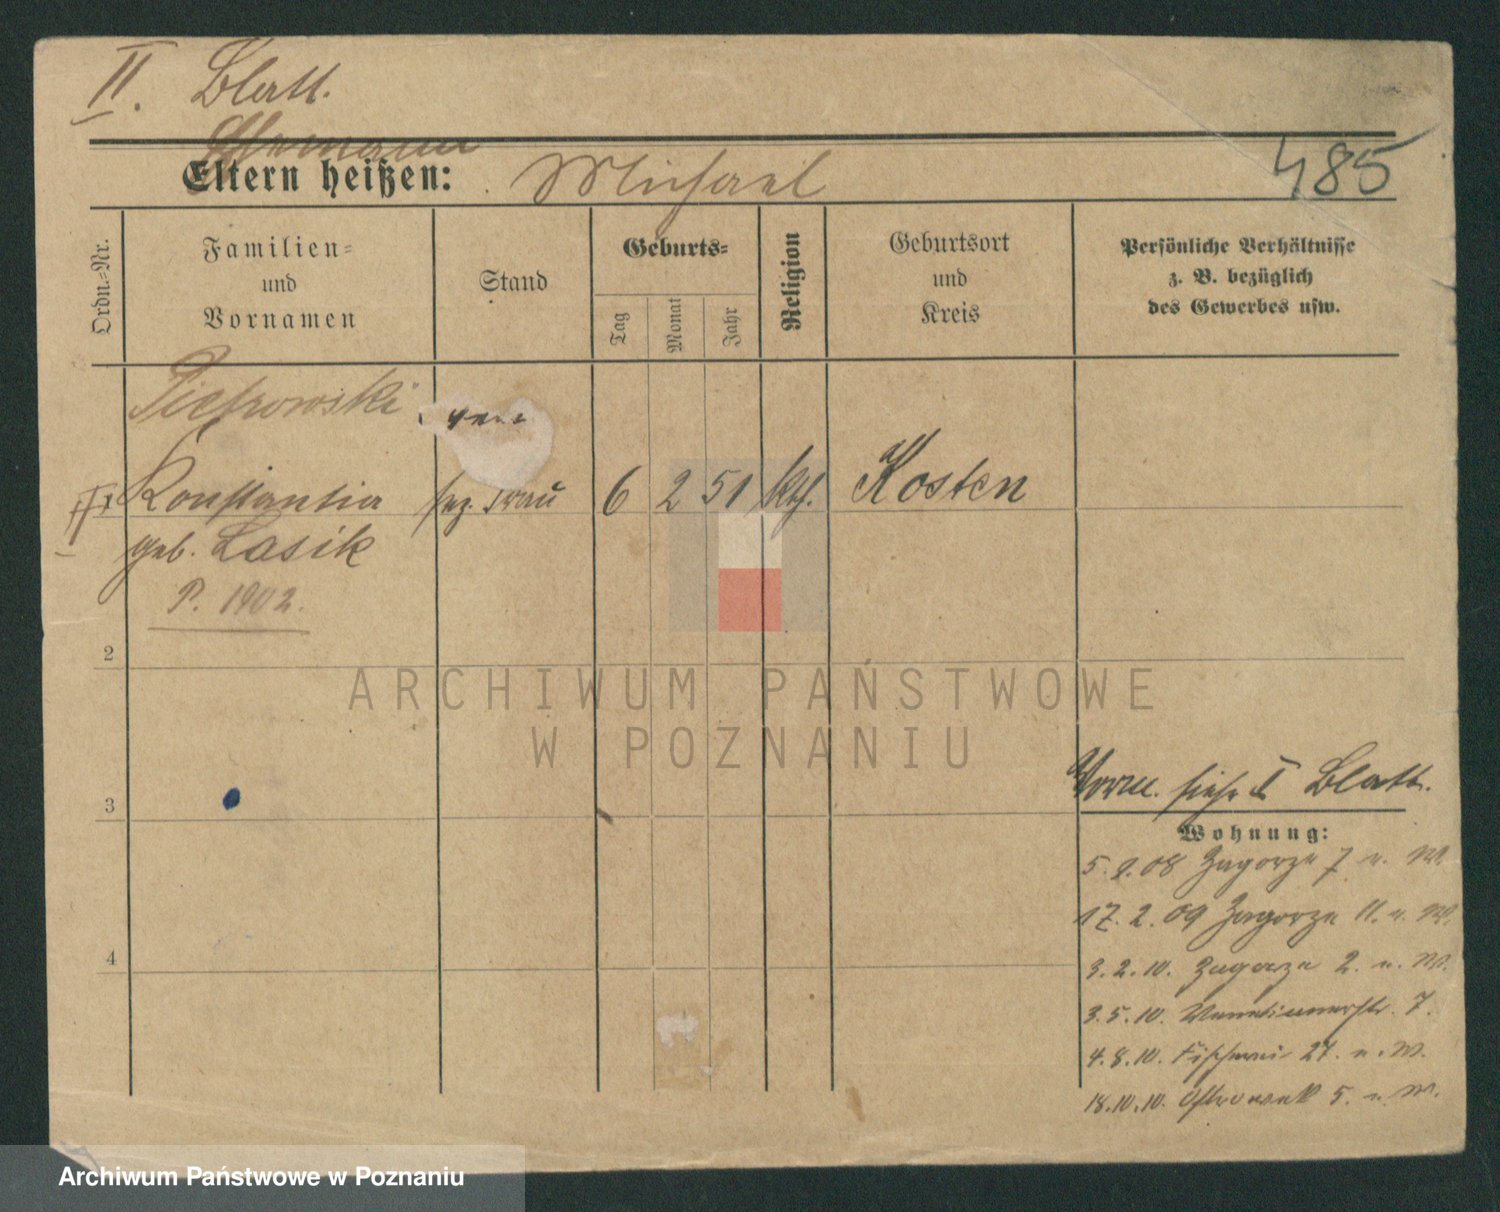 II. Blatt.
Ehemann
Eltern heißen: Michael
485
Ordn.=Nr.
Familien=
und
Vornamen
Stand
Geburts=
Tag
Monat
Jahr
Religion
Geburtsort
und
Kreis
Persönliche Verhältnisse
z. B. bezüglich
des Gewerbes usw.
Pietrowski
1 Konstantia
Frau
6 2 51 kth. Kosten
geb. Lasik
P. 1902.
2
3
4
ARCHIWUM PAŃSTWOWE
W POZNANIU
Vorm. siehe I Blatt.
Wohnung:
5.9.08 Zagorze 7 u. W.
17.2.09 Zagorze 11. u. W.
3.2.10. Zagorze 2. u. W.
3.5.10. Venetianerstr. 7.
4.8.10. Fischerei 27. u. W.
18.10.10. Ostrowek 5. u. W.
Archiwum Państwowe w Poznaniu